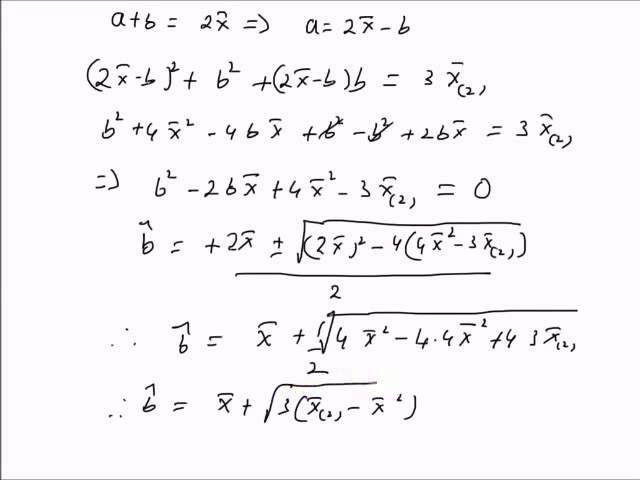 a+b = 2x̄ => a = 2x̄ - b
(2x̄-b)² + b² + (2x̄-b)b = 3 x̄₍₂₎
b² + 4x̄² - 4bx̄ + b² - b² + 2bx̄ = 3 x̄₍₂₎
=> b² - 2bx̄ + 4x̄² - 3x̄₍₂₎ = 0
b̂ = +2x̄ ± √((2x̄)² - 4(4x̄² - 3x̄₍₂₎)) / 2
∴ b̂ = x̄ + 1/2 √(4x̄² - 4.4x̄² + 4 3x̄₍₂₎)
∴ b̂ = x̄ + √(3(x̄₍₂₎ - x̄²))